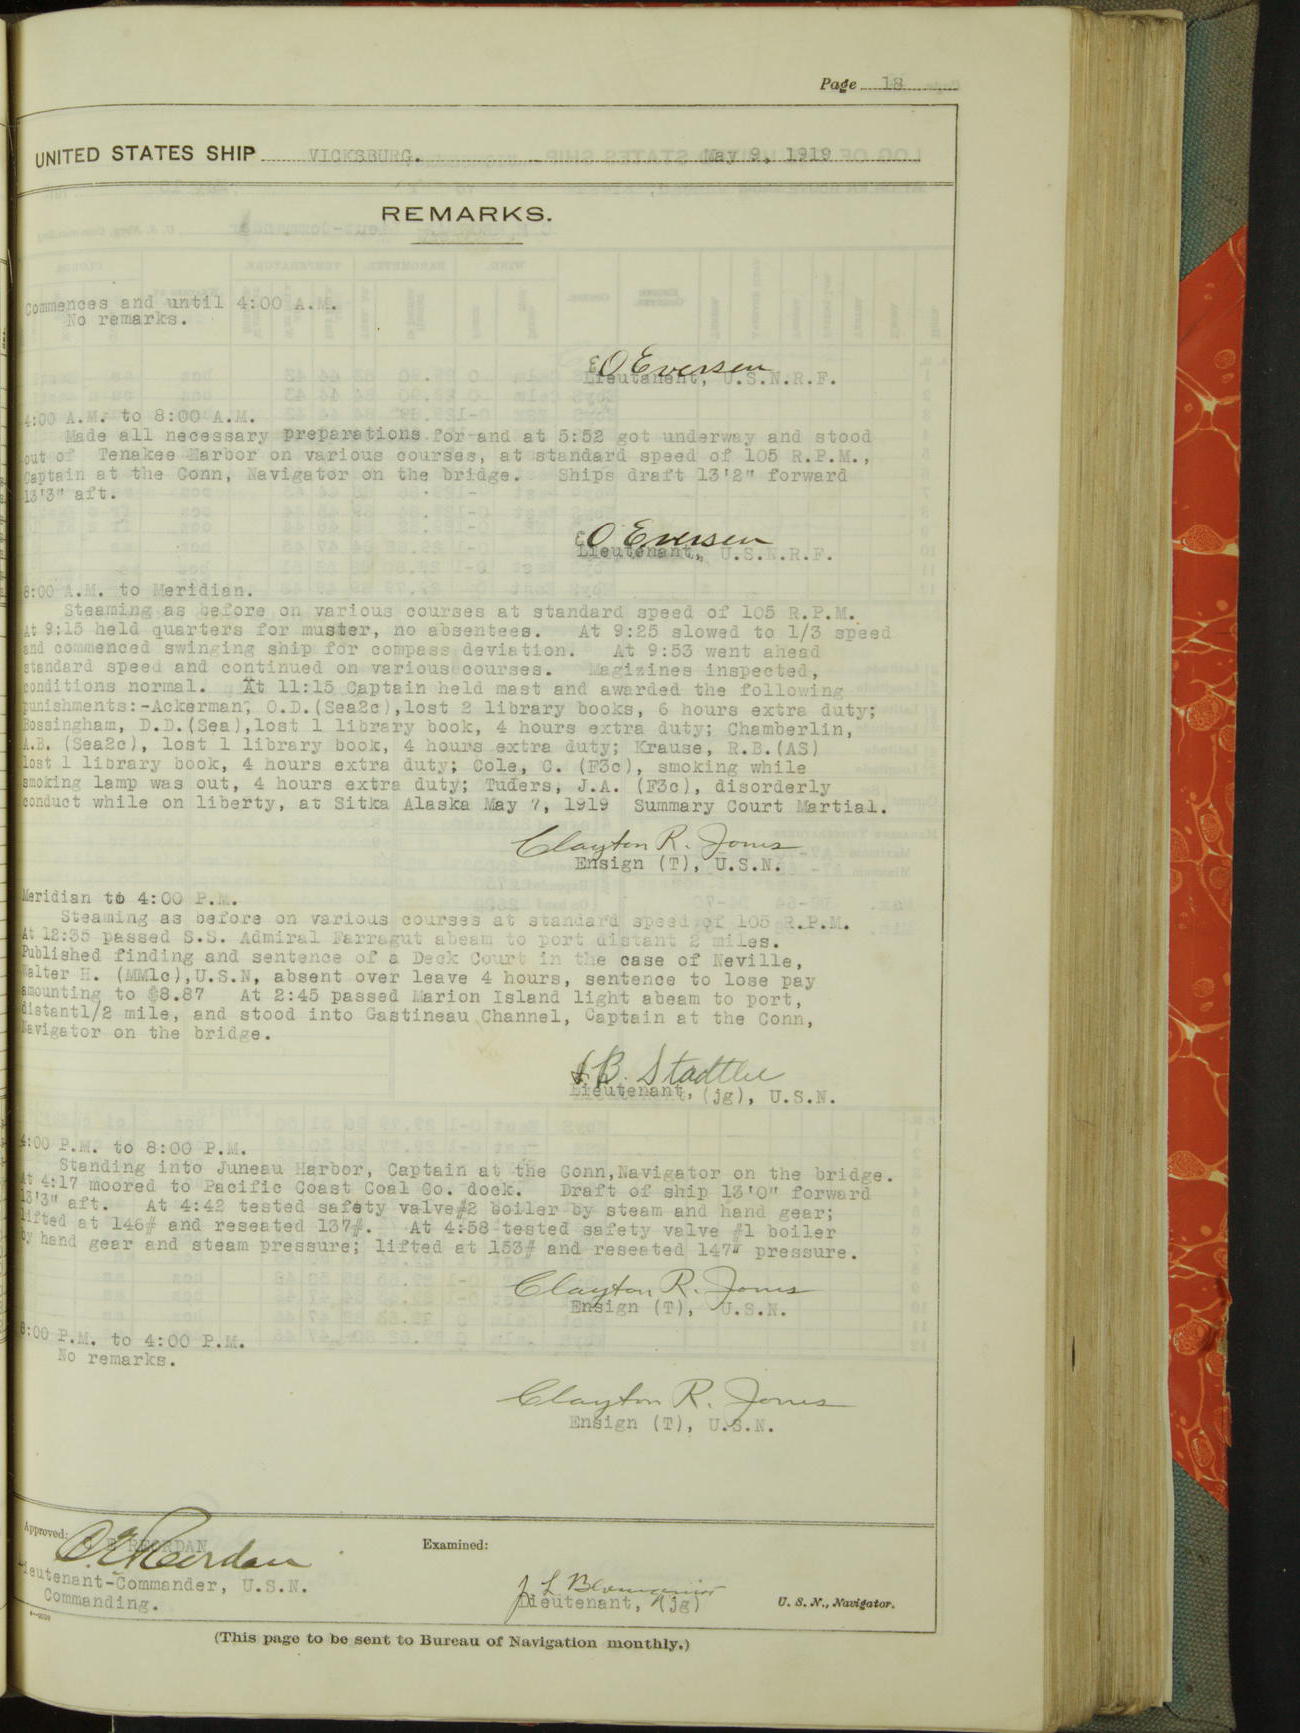 Page 18
UNITED STATES SHIP VICKSBURG. May 9, 1919
REMARKS.
Commences and until 4:00 A.M.
No remarks.
E O Eversen
Lieutenant, U.S.N.R.F.
4:00 A.M. to 8:00 A.M.
Made all necessary preparations for and at 5:52 got underway and stood
out of Tenakee Harbor on various courses, at standard speed of 105 R.P.M.,
Captain at the Conn, Navigator on the bridge. Ships draft 13'2" forward
13'3" aft.
E O Eversen
Lieutenant, U.S.N.R.F.
8:00 A.M. to Meridian.
Steaming as before on various courses at standard speed of 105 R.P.M.
At 9:15 held quarters for muster, no absentees. At 9:25 slowed to 1/3 speed
and commenced swinging ship for compass deviation. At 9:53 went ahead
standard speed and continued on various courses. Magizines inspected,
conditions normal. At 11:15 Captain held mast and awarded the following
punishments:-Ackerman, O.D.(Sea2c),lost 2 library books, 6 hours extra duty;
Bossingham, D.D.(Sea),lost 1 library book, 4 hours extra duty; Chamberlin,
A.B. (Sea2c), lost 1 library book, 4 hours extra duty; Krause, R.B.(AS)
lost 1 library book, 4 hours extra duty; Cole, C. (F3c), smoking while
smoking lamp was out, 4 hours extra duty; Tuders, J.A. (F3c), disorderly
conduct while on liberty, at Sitka Alaska May 7, 1919 Summary Court Martial.
Clayton R. Jones
Ensign (T), U.S.N.
Meridian to 4:00 P.M.
Steaming as before on various courses at standard speed of 105 R.P.M.
At 12:35 passed S.S. Admiral Farragut abeam to port distant 2 miles.
Published finding and sentence of a Deck Court in the case of Neville,
Walter H. (MM1c),U.S.N, absent over leave 4 hours, sentence to lose pay
amounting to $8.87 At 2:45 passed Marion Island light abeam to port,
distant1/2 mile, and stood into Gastineau Channel, Captain at the Conn,
Navigator on the bridge.
B. Stadtler
Lieutenant, (jg), U.S.N.
4:00 P.M. to 8:00 P.M.
Standing into Juneau Harbor, Captain at the Conn,Navigator on the bridge.
At 4:17 moored to Pacific Coast Coal Co. dock. Draft of ship 13'0" forward
13'3" aft. At 4:42 tested safety valve#2 boiler by steam and hand gear;
lifted at 146# and reseated 137#. At 4:58 tested safety valve #1 boiler
by hand gear and steam pressure; lifted at 153# and reseated 147# pressure.
Clayton R. Jones
Ensign (T), U.S.N.
8:00 P.M. to 4:00 P.M.
No remarks.
Clayton R. Jones
Ensign (T), U.S.N.
Approved:
REORDAN
Lieutenant-Commander, U.S.N.
Commanding.
Examined:
J L
Lieutenant, (jg) U. S. N., Navigator.
(This page to be sent to Bureau of Navigation monthly.)